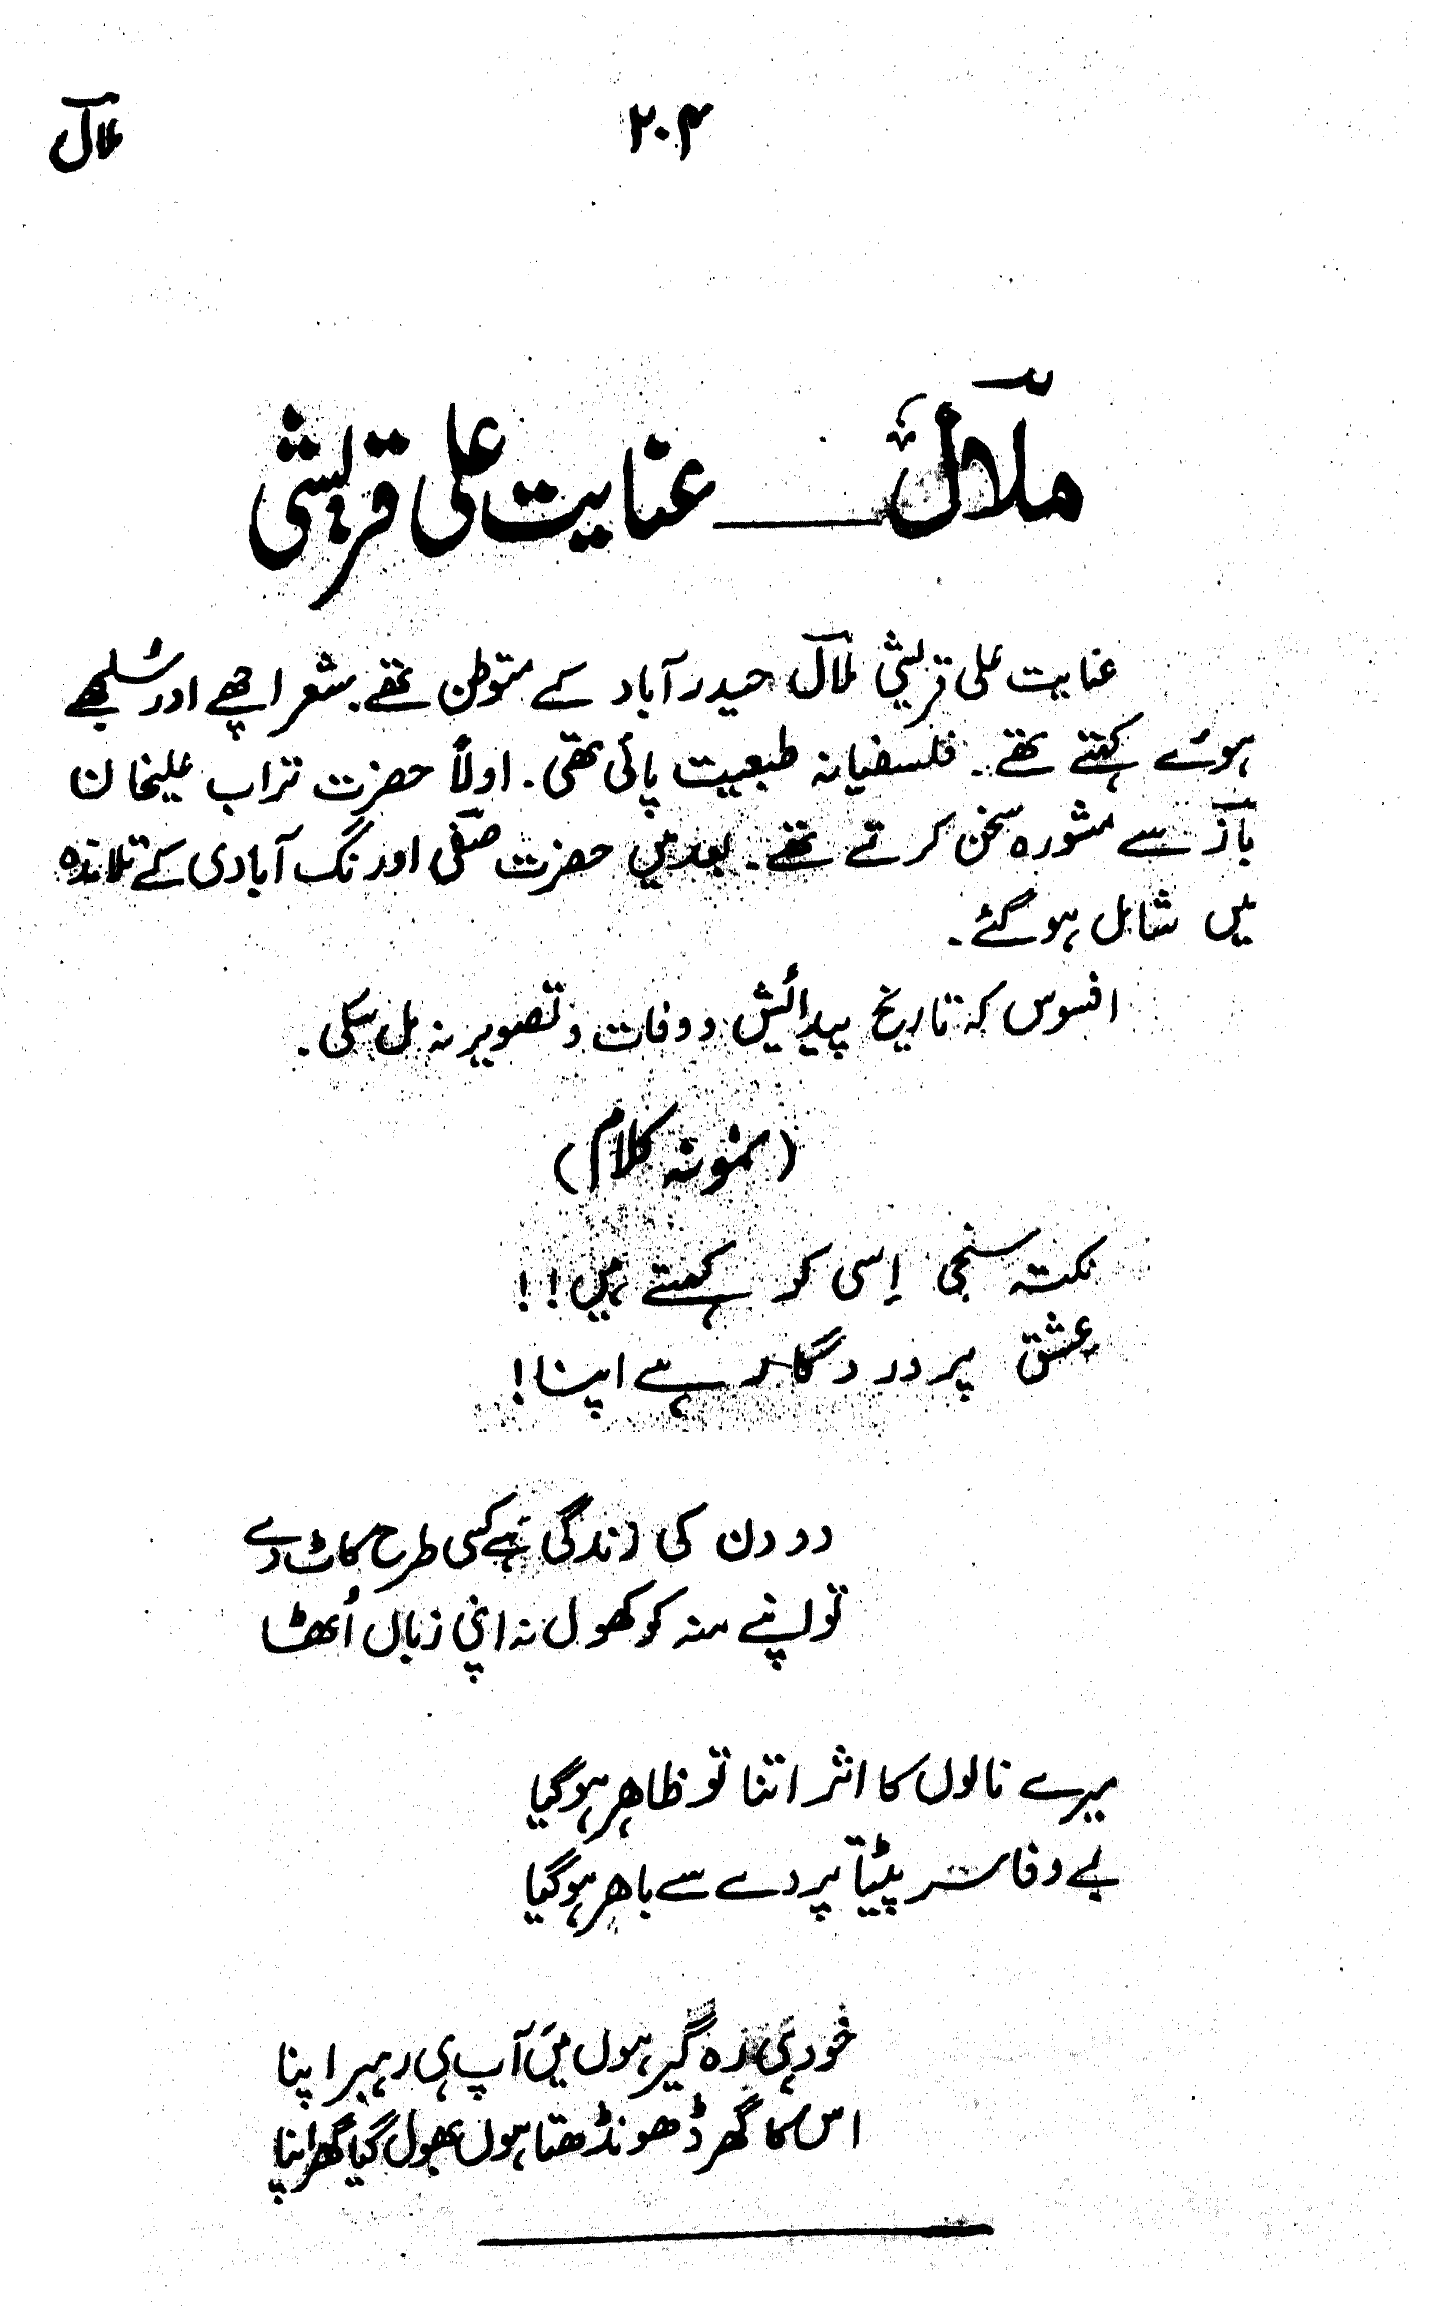 ملال
۲۰۴
ملالؔ ـــــ عنایت علی قریشی
عنایت علی قریشی ملالؔ حیدر آباد کے متوطن تھے۔ شعر اچھے اور سُلجھے
ہوئے کہتے تھے۔ فلسفیانہ طبعیت پائی تھی۔ اولاً حضرت تراب علیخان
بازؔ سے مشورہ سخن کرتے تھے۔ بعد میں حضرت صفیؔ اورنگ آبادی کے تلامذہ
میں شامل ہو گئے۔
افسوس کہ تاریخ پیدائش و وفات و تصویر نہ مل سکی۔
(نمونہ کلام)
نکتہ سنجی اِسی کو کہتے ہیں!!
عشق پروردگار ہے اپنا!
دو دن کی زندگی ہے کسی طرح کاٹ دے
تو اپنے منہ کو کھول نہ اپنی زباں اُٹھا
میرے نالوں کا اثر اتنا تو ظاہر ہو گیا
بے وفا سر پیٹتا پردے سے باہر ہو گیا
خود ہی رہ گیر ہوں میں آپ ہی رہبر اپنا
اس کا گھر ڈھونڈھتا ہوں بھول گیا گھر اپنا